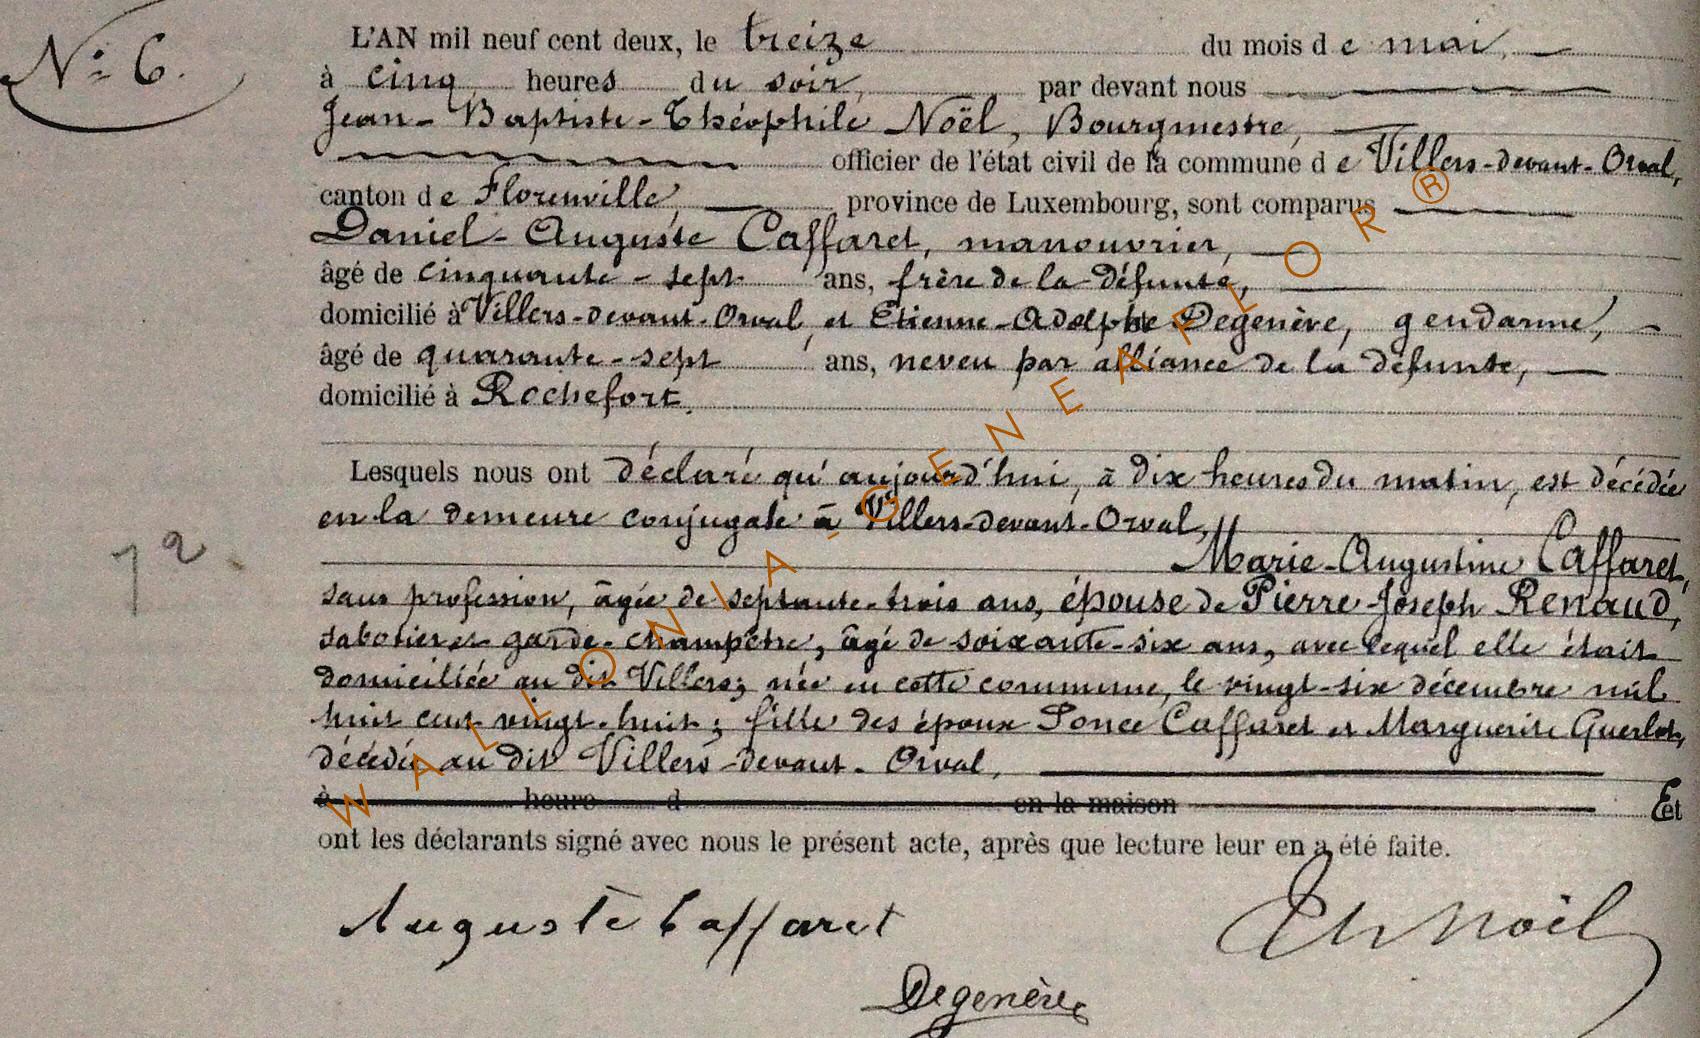 Nº 6.
L'AN mil neuf cent deux, le treize du mois de mai,
à cinq heures du soir, par devant nous
Jean-Baptiste-Théophile Noël, Bourgmestre,
officier de l'état civil de la commune de Villers-devant-Orval,
canton de Florenville, province de Luxembourg, sont comparus
Daniel-Auguste Caffaret, manouvrier,
âgé de cinquante-sept ans, frère de la défunte,
domicilié à Villers-devant-Orval, et Etienne-Adolphe Degenève, gendarme,
âgé de quarante-sept ans, neveu par alliance de la défunte,
domicilié à Rochefort.
Lesquels nous ont déclaré qu'aujourd'hui, à dix heures du matin, est décédée
en la demeure conjugale à Villers-devant-Orval,
Marie-Augustine Caffaret,
72.
sans profession, âgée de septante-trois ans, épouse de Pierre-Joseph Renaud,
sabotier et garde-champêtre, âgé de soixante-six ans, avec lequel elle était
domiciliée au dit Villers; née en cette commune, le vingt-six décembre mil
huit cent vingt-huit; fille des époux Ponce Caffaret et Marguerite Guerlot,
décédés au dit Villers-devant-Orval,
à heure d en la maison Et
ont les déclarants signé avec nous le présent acte, après que lecture leur en a été faite.
Auguste Caffaret
Th Noël
Degenève
WALLONIA-GENEAFLOR®